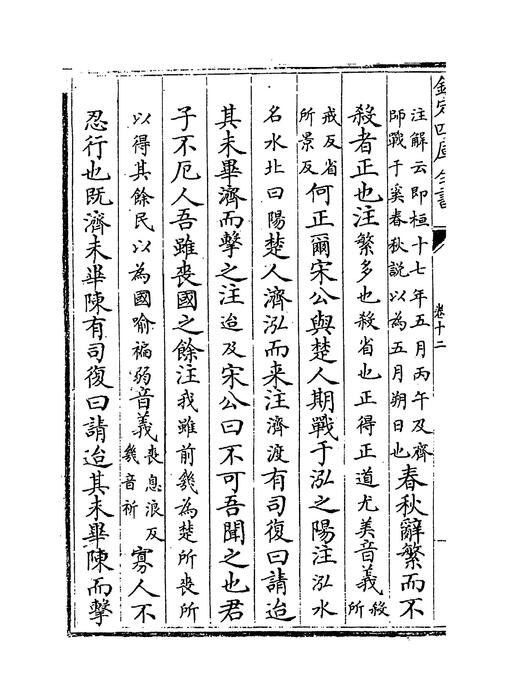 欽定四庫全書
卷十二
注解云即桓十七年五月丙午及齊
師戰于奚春秋說以為五月朔日也
春秋辭繁而不
殺者正也注繁多也殺省也正得正道尤美音義
殺
所
戒反省
所景反
何正爾宋公與楚人期戰于泓之陽注泓水
名水北曰陽楚人濟泓而来注濟渡有司復曰請迨
其未畢濟而擊之注迨及宋公曰不可吾聞之也君
子不厄人吾雖喪國之餘注我雖前幾為楚所喪所
以得其餘民以為國喻褊弱音義
喪息浪反
幾音祈
寡人不
忍行也既濟未畢陳有司復曰請迨其未畢陳而擊